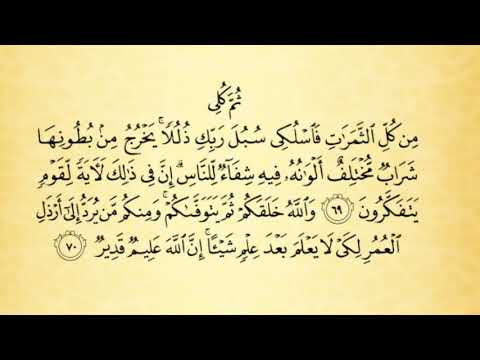 ثُمَّ كُلِى
مِن كُلِّ الثَّمَرَٰتِ فَاسْلُكِى سُبُلَ رَبِّكِ ذُلُلًا ۚ يَخْرُجُ مِنۢ بُطُونِهَا
شَرَابٌ مُّخْتَلِفٌ أَلْوَٰنُهُۥ فِيهِ شِفَآءٌ لِّلنَّاسِ ۗ إِنَّ فِى ذَٰلِكَ لَءَايَةً لِّقَوْمٍ
يَتَفَكَّرُونَ ٦٩ وَاللَّهُ خَلَقَكُمْ ثُمَّ يَتَوَفَّىٰكُمْ ۚ وَمِنكُم مَّن يُرَدُّ إِلَىٰٓ أَرْذَلِ
الْعُمُرِ لِكَىْ لَا يَعْلَمَ بَعْدَ عِلْمٍ شَيْـًٔا ۚ إِنَّ اللَّهَ عَلِيمٌ قَدِيرٌ ٧٠